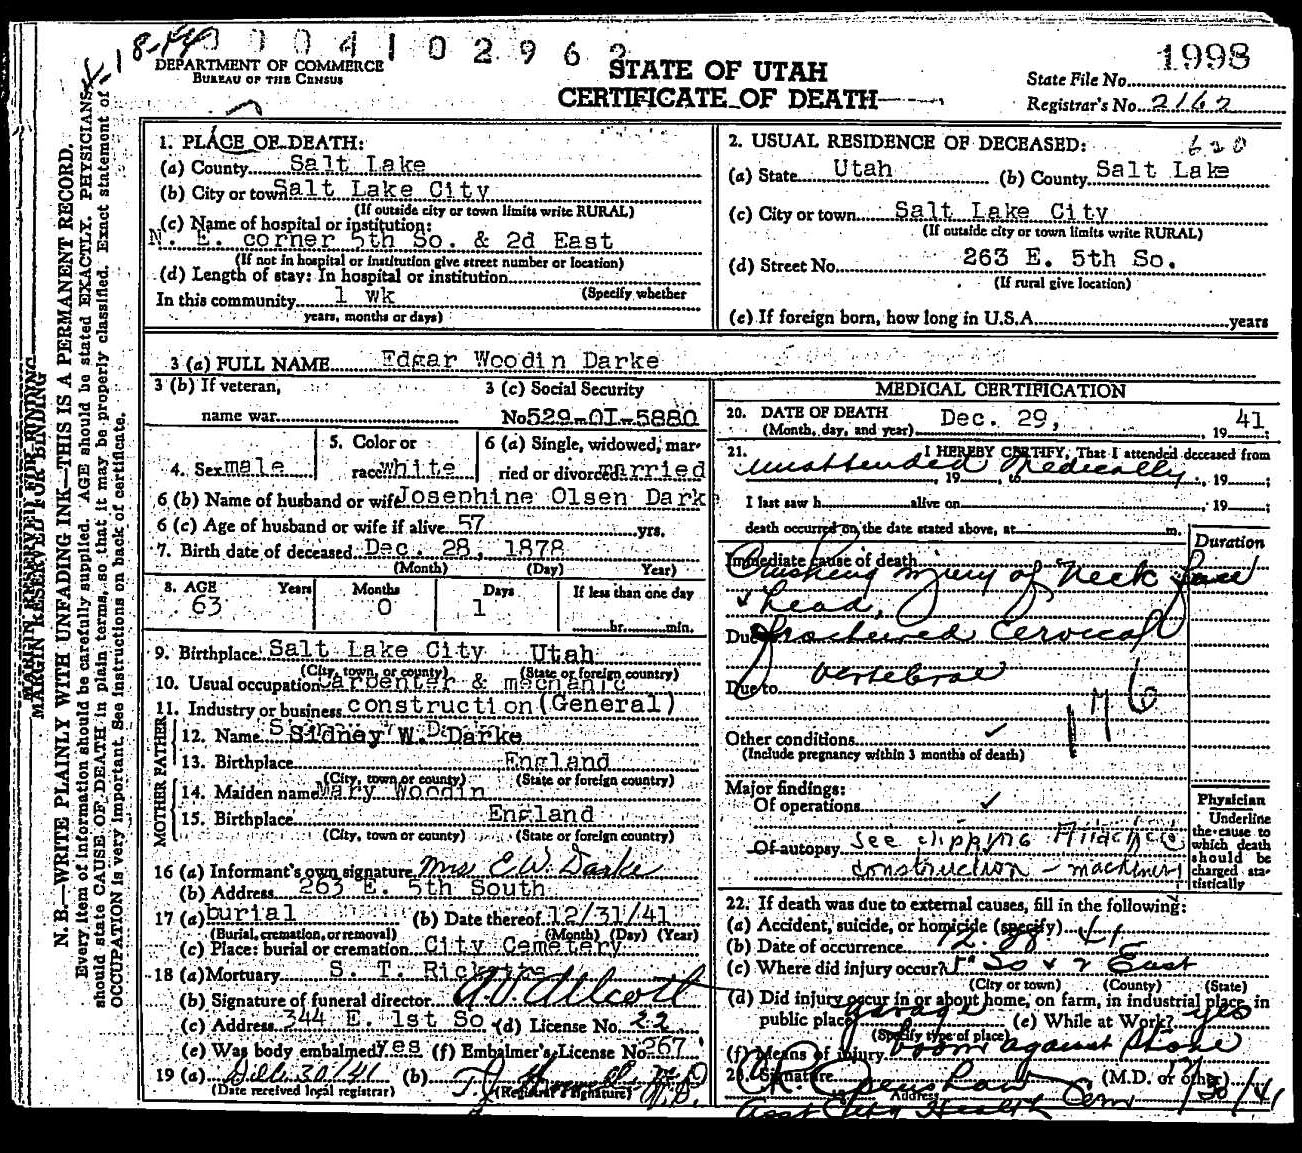 8-44 0 0 0 4 1 0 2 9 6 2
1998
DEPARTMENT OF COMMERCE
BUREAU OF THE CENSUS
STATE OF UTAH
CERTIFICATE OF DEATH
State File No.
Registrar's No. 2162
MARGIN RESERVED FOR BINDING
N. B.—WRITE PLAINLY WITH UNFADING INK—THIS IS A PERMANENT RECORD.
Every item of information should be carefully supplied. AGE should be stated EXACTLY. PHYSICIANS
should state CAUSE OF DEATH in plain terms, so that it may be properly classified. Exact statement of
OCCUPATION is very important. See instructions on back of certificate.
1. PLACE OF DEATH:
(a) County Salt Lake
(b) City or town Salt Lake City
(If outside city or town limits write RURAL)
(c) Name of hospital or institution:
N. E. corner 5th So. & 2d East
(If not in hospital or institution give street number or location)
(d) Length of stay: In hospital or institution
(Specify whether
In this community 1 wk
years, months or days)
2. USUAL RESIDENCE OF DECEASED: 620
(a) State Utah (b) County Salt Lake
(c) City or town Salt Lake City
(If outside city or town limits write RURAL)
(d) Street No. 263 E. 5th So.
(If rural give location)
(e) If foreign born, how long in U.S.A. years
3 (a) FULL NAME Edgar Woodin Darke
3 (b) If veteran, name war
3 (c) Social Security No 529-01-5880
4. Sex male
5. Color or race white
6 (a) Single, widowed, married or divorced married
6 (b) Name of husband or wife Josephine Olsen Dark
6 (c) Age of husband or wife if alive 57 yrs.
7. Birth date of deceased Dec. 28, 1878
(Month) (Day) Year)
8. AGE Years Months Days If less than one day
63 0 1 hr. min.
9. Birthplace Salt Lake City Utah
(City, town, or county) (State or foreign country)
10. Usual occupation carpenter & mechanic
11. Industry or business construction (General)
FATHER
12. Name Sidney W. Darke
13. Birthplace England
(City, town or county) (State or foreign country)
MOTHER
14. Maiden name Mary Woodin
15. Birthplace England
(City, town or county) (State or foreign country)
16 (a) Informant's own signature Mrs E. W. Darke
(b) Address 263 E. 5th South
17 (a) burial (b) Date thereof 12/31/41
(Burial, cremation, or removal) (Month) (Day) (Year)
(c) Place: burial or cremation City Cemetery
18 (a) Mortuary S. T.
(b) Signature of funeral director
(c) Address 344 E. 1st So (d) License No. 22
(e) Was body embalmed? yes (f) Embalmer's License No. 267
19 (a) Dec 30/41 (b)
(Date received local registrar) (Registrar's signature)
MEDICAL CERTIFICATION
20. DATE OF DEATH Dec. 29, 1941;
(Month, day, and year)
21. I HEREBY CERTIFY, That I attended deceased from
unattended medically, 19 , to , 19 ;
I last saw h alive on , 19 ;
death occurred on the date stated above, at m.
Duration
Immediate cause of death
Crushing injury of neck face
& head,
Due to fractured cervical
vertebrae
Due to
176
Other conditions ✓
(Include pregnancy within 3 months of death)
Major findings:
Of operations ✓
Of autopsy see clipping Accident
construction - machinery
Physician
Underline
the cause to
which death
should be
charged sta-
tistically
22. If death was due to external causes, fill in the following:
(a) Accident, suicide, or homicide (specify)
(b) Date of occurrence 12. 29. 41
(c) Where did injury occur? 5" So & 2 East
(City or town) (County) (State)
(d) Did injury occur in or about home, on farm, in industrial place, in
public place? garage (e) While at Work? yes
(Specify type of place)
(f) Means of injury boom against
23. Signature (M.D. or other)
Address 12/30/41
City Health